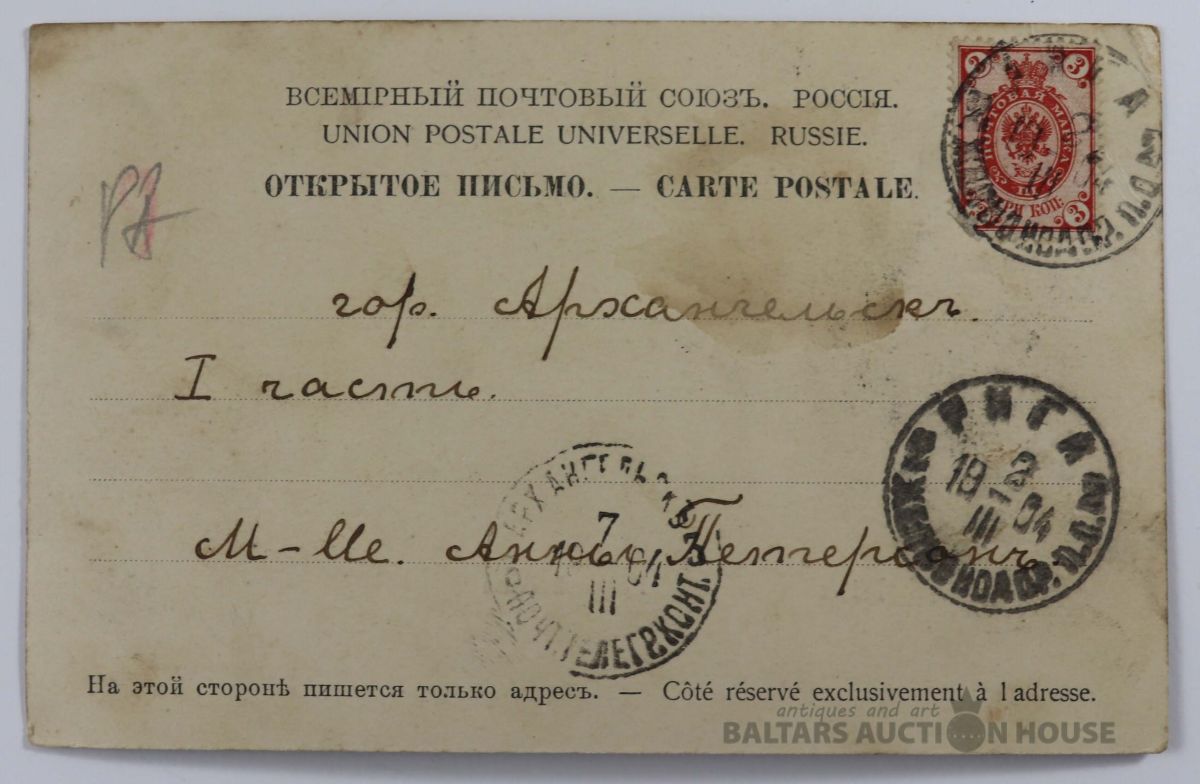 ВСЕМІРНЫЙ ПОЧТОВЫЙ СОЮЗЪ. РОССІЯ.
UNION POSTALE UNIVERSELLE. RUSSIE.
ОТКРЫТОЕ ПИСЬМО. — CARTE POSTALE.
3 3
ПОЧТОВАЯ МАРКА
ТРИ КОП.
3
гор. Архангельскъ.
I часть.
РИГА
19 3 III 04
АРХАНГЕЛЬСК
7
III 04
ПОЧТ. ТЕЛЕГР. КОНТ.
М-lle. Анны Петерсонъ
На этой сторонѣ пишется только адресъ. — Côté réservé exclusivement à l adresse.
antiques and art
BALTARS AUCTION HOUSE